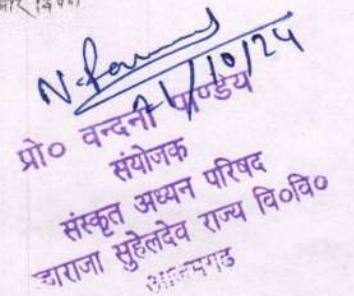 21/10/24
प्रो० वन्दना पाण्डेय
संयोजक
संस्कृत अध्यन परिषद
हाराजा सुहेलदेव राज्य वि०वि०
आजमगढ